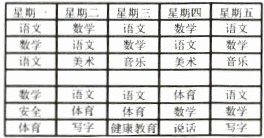 星期一 星期二 星期三 星期四 星期五
语文 数学 语文 数学 语文
数学 语文 数学 语文 数学
语文 美术 音乐 美术 音乐
数学 语文 语文 体育 语文
安全 体育 体育 数学 数学
体育 写字 健康教育 说话 写字